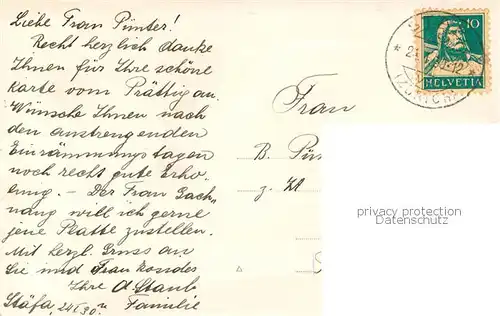 Liebe Frau Pünter!
Recht herzlich danke
Ihnen für Ihre schöne
Karte vom Prättigau.
Wünsche Ihnen nach
den anstrengenden
Einräumungstagen
noch recht gute Erho-
lung. – Der Frau Bach-
nang will ich gerne
jene Platte zustellen.
Mit herzl. Gruss an
Sie und Frau
Ihre A. Staub
Stäfa, Familie
Frau
B. Pün
z.
10
HELVETIA
(ZÜRICH)
privacy protection
Datenschutz